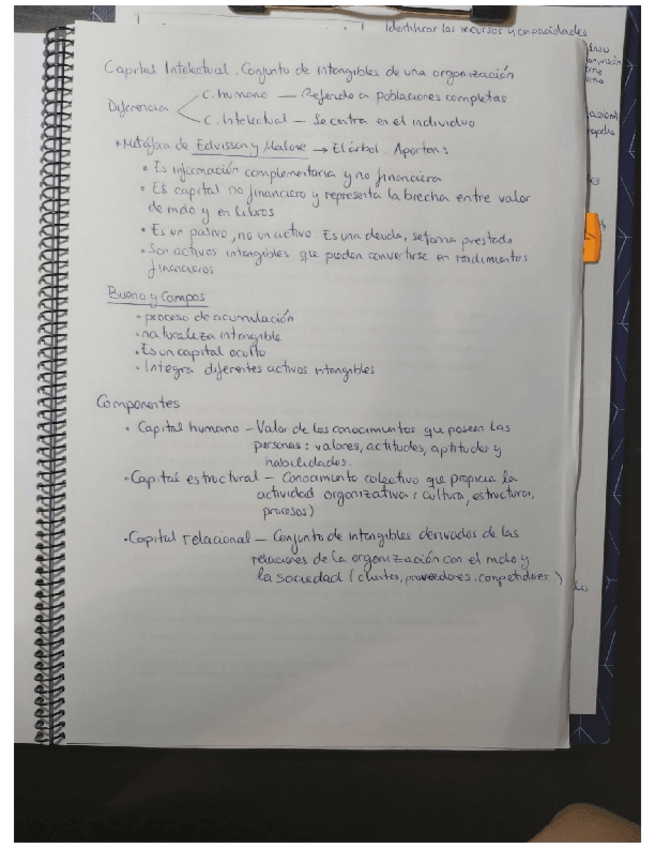 Identificar los recursos y capacidades
Capital Intelectual. Conjunto de intangibles de una organización
Diferencia
C. humano — Referido a poblaciones completas
C. Intelectual — Se centra en el individuo
* Metáfora de Edvisson y Malone → El árbol. Aportan:
• Es información complementaria y no financiera
• Es capital no financiero y representa la brecha entre valor
de mdo y en libros
• Es un pasivo, no un activo. Es una deuda, se toma prestado
• Son activos intangibles que pueden convertirse en rendimientos
financieros
Bueno y Campos
• proceso de acumulación
• naturaleza intangible
• Es un capital oculto
• Integra diferentes activos intangibles
Componentes
• Capital humano – Valor de los conocimientos que poseen las
personas: valores, actitudes, aptitudes y
habilidades.
• Capital estructural – Conocimiento colectivo que propicia la
actividad organizativa: cultura, estructura,
procesos)
• Capital relacional – Conjunto de intangibles derivados de las
relaciones de la organización con el mdo y
la sociedad (clientes, proveedores, competidores.)